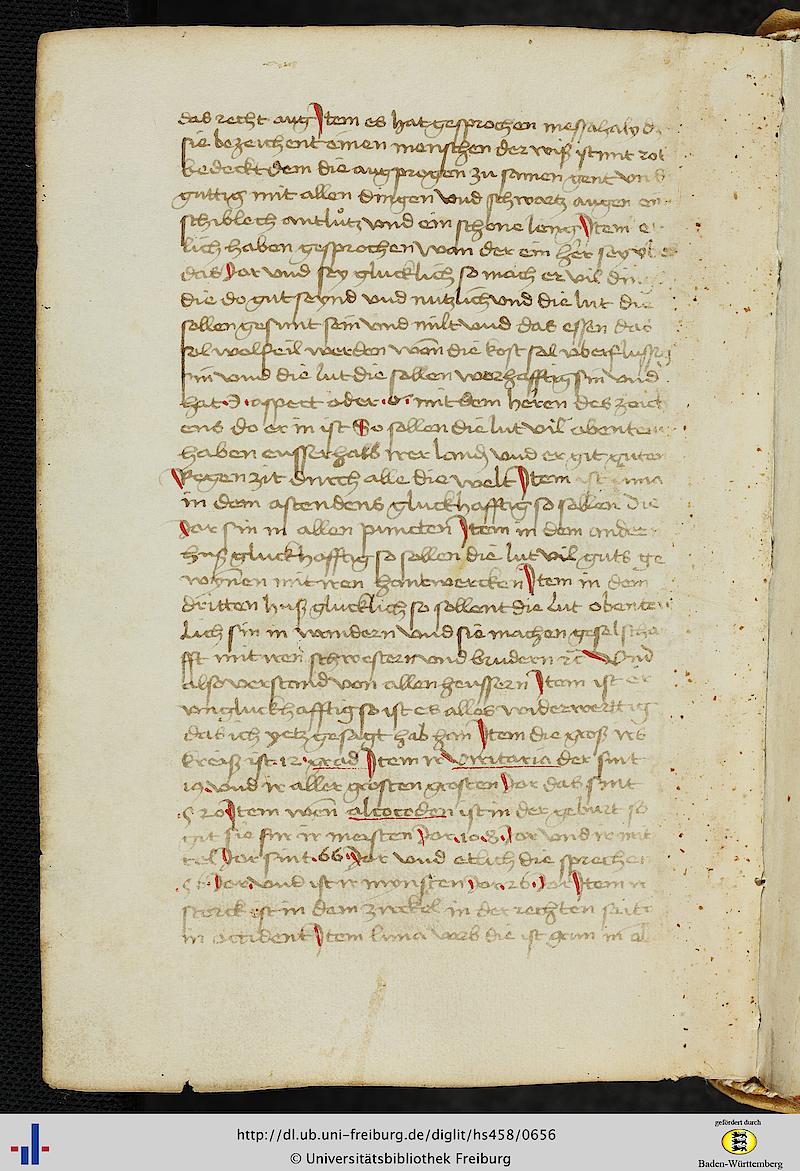 das recht aug Item es hat gesprochen messahalyd
sie bezeichent einen menschen der wiß ist mit rot
bedeckt dem die augprogen zu samen gent vnd
guttig mit allen dingen vnd schwartz augen ein
schiblech antlutz vnd ein schone leng Item et
lich haben gesprochen wan der ein her sey vber
das Jor vnd sey glucklich so mach er vil ding
die do gut seynd vnd nutzlich vnd die lut die
sollen gesunt sein vnd milt vnd das essen das
sol wolfeil werden wan die kost sol vberflussig
sin vnd die lut die sollen werhafftig sin vnd
hat aspect oder mit dem heren des zeich
ens do er in ist So sollen die lut vil obenteur
haben eusserhalb irer land vnd er git guten
Regen zit durch alle die welt Item ist luna
in dem ascendens gluckhafftig so sollen die
Jor sin in allen puncten Item in dem ander
huß gluckhafftig so sollen die lut vil guts ge
wynnen mit iren hantwercken Item in dem
dritten huß glucklich so sollent die lut obenteu
lich sin in wandern vnd sie machen geselscha
fft mit iren schwestern vnd brudern Vnd
also verstand von allen heussern Item ist er
vngluckhafftig so ist es alles widerwerttig
das ich yetz gesagt hab han Item die groß irs
kreiß ist .12. grad Item ir der sint
19 vnd ir aller grosten grosten Jor das sint
520 Item wen alcocoden ist in der geburt so
git sie fur ir meisten Jor .108. Jor vnd ir mit
tel Jor sint .66. Jor vnd etlich die sprechen
Jor vnd ist ir mynsten Jor .26. Jor Item ir
sterck ist in dem zirckel in der rechten sitte
in occident Item luna varb die ist grun in
http://dl.ub.uni-freiburg.de/diglit/hs458/0656
© Universitätsbibliothek Freiburg
gefördert durch
Baden-Württemberg